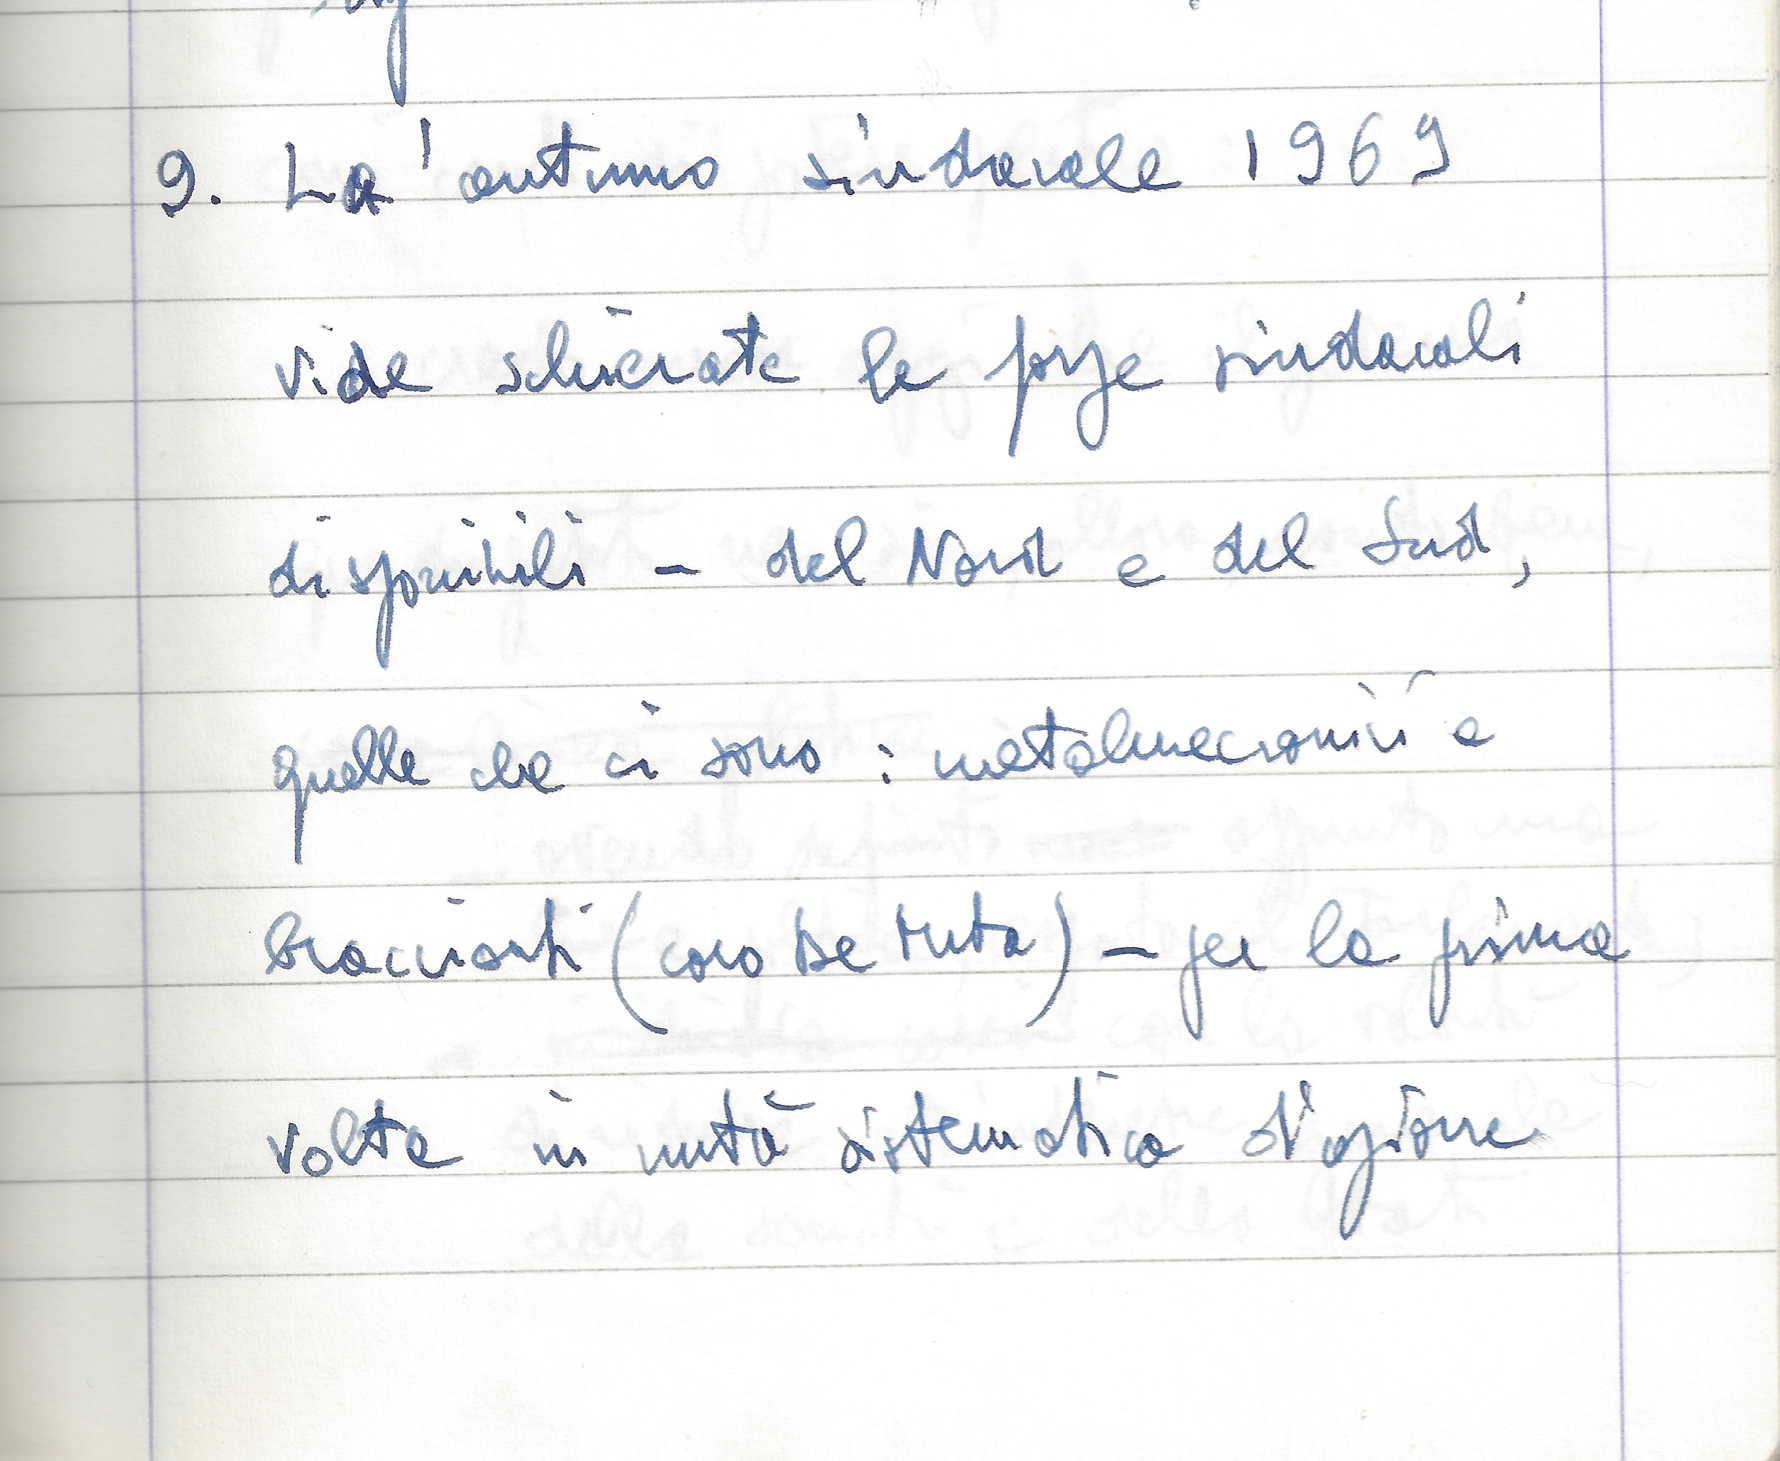 9. La' autunno sindacale 1969
vide schierate le forze sindacali
disponibili – del Nord e del Sud,
quelle che ci sono : metalmeccanici e
braccianti (caso De) – per la prima
volta in unità sistematica d'azione